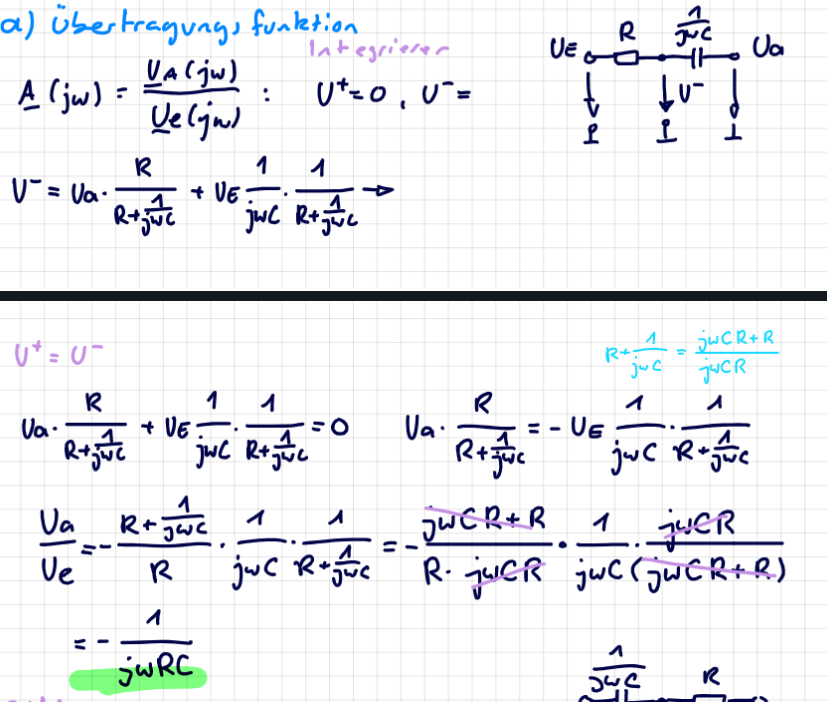 a) Übertragungsfunktion
Integrierer
A(jω) = U_A(jω) / U_e(jω) : U⁺ = 0 , U⁻ =
U_E R 1/jωC U_a
U⁻
U⁻ = U_a · R/(R+1/jωC) + U_E 1/jωC · 1/(R+1/jωC) →
U⁺ = U⁻
R+1/jωC = (jωCR+R)/jωCR
U_a · R/(R+1/jωC) + U_E 1/jωC · 1/(R+1/jωC) = 0 U_a · R/(R+1/jωC) = - U_E 1/jωC · 1/(R+1/jωC)
U_a/U_e = - (R+1/jωC)/R · 1/jωC · 1/(R+1/jωC) = - (jωCR+R)/(R·jωCR) · 1/jωC · jωCR/(jωCR+R)
= - 1/jωRC
1/jωC R